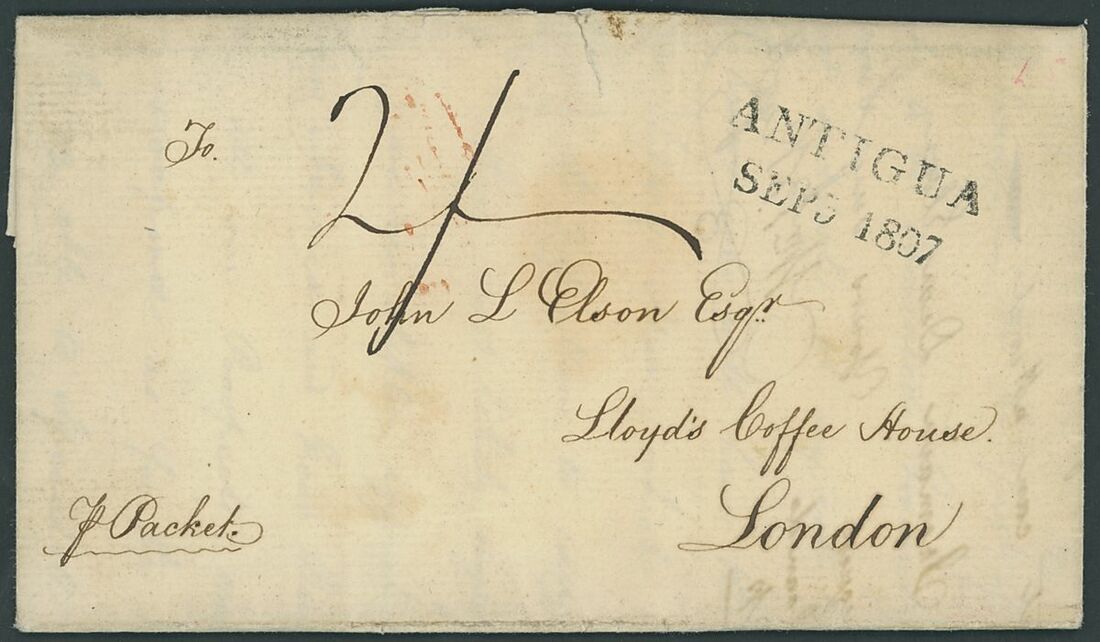 To.
2/
ANTIGUA
SEP 5 1807
John L Elson Esqr
Lloyd's Coffee House.
London
p Packet.